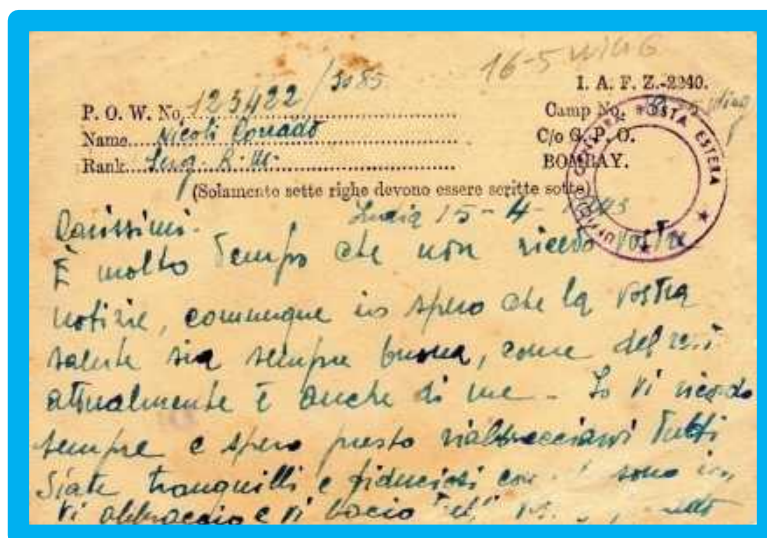 I. A. F. Z.-2240.
P. O. W. No. 123422/3085
Camp No.
Name Nicoli Corrado
C/o G. P. O.
Rank Serg. R. M.
BOMBAY.
POSTA ESTERA
(Solamente sette righe devono essere scritte sotto)
India 15-4-1943
Carissimi.
È molto tempo che non ricevo vostre
notizie, comunque io spero che la vostra
salute sia sempre buona, come del resto
attualmente è anche di me - Io vi ricordo
sempre e spero presto riabbracciarvi tutti
Siate tranquilli e fiduciosi sono io
Vi abbraccio e vi bacio